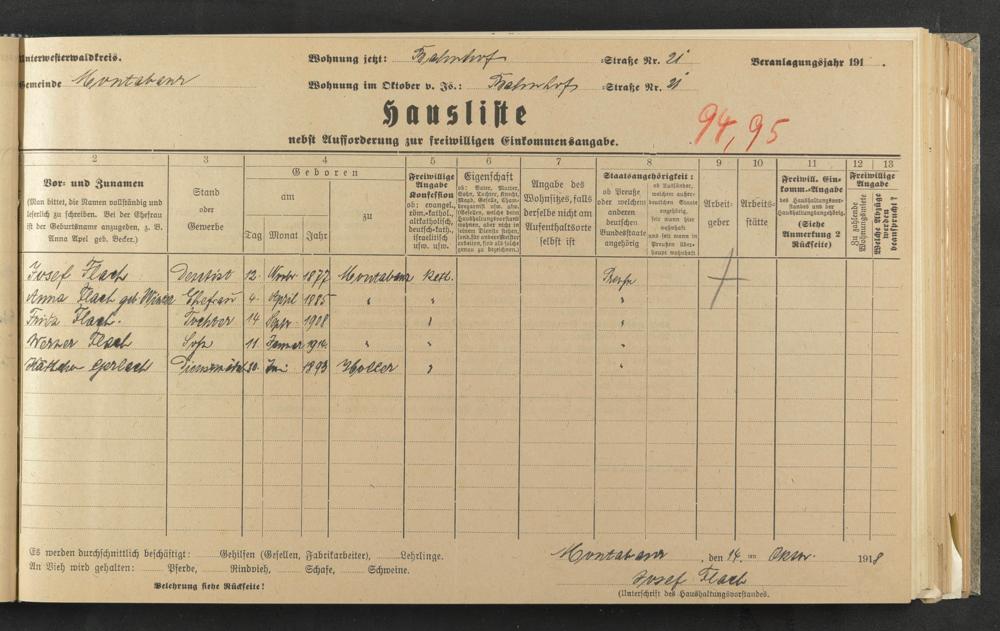 Unterwesterwaldkreis.
Wohnung jetzt: Bahnhof -Straße Nr. 21
Veranlagungsjahr 191 .
Gemeinde Montabaur
Wohnung im Oktober v. Js.: Bahnhof -Straße Nr. 21
Hausliste
94, 95
nebst Aufforderung zur freiwilligen Einkommensangabe.
2 3 4 5 6 7 8 9 10 11 12 13
Vor- und Zunamen
(Man bittet, die Namen vollständig und
leserlich zu schreiben. Bei der Ehefrau
ist der Geburtsname anzugeben, z. B.
Anna Apel geb. Becker.)
Stand
oder
Gewerbe
Geboren
am
Tag Monat Jahr
zu
Freiwillige
Angabe
Konfession
ob: evangel.,
röm.-kathol.,
altkatholisch,
deutsch-kath.,
israelitisch
usw. usw.
Eigenschaft
ob: Vater, Mutter,
Sohn, Tochter, Knecht,
Magd, Geselle,
Angabe des
Wohnsitzes, falls
derselbe nicht am
Aufenthaltsorte
selbst ist
Staatsangehörigkeit:
ob Preuße
oder welchem
anderen
deutschen
Bundesstaate
angehörig
ob Ausländer,
welchem außer-
deutschen Staate
angehörig,
seit wann hier
wohnhaft
und seit wann in
Preußen über-
haupt wohnhaft
Arbeit-
geber
Arbeits-
stätte
Freiwill. Ein-
komm.-Angabe
des Haushaltungsvor-
standes und der
Haushaltungsangehörigen
(Siehe
Anmerkung 2
Rückseite)
Freiwillige
Angabe
Zu zahlende
Wohnungsmiete
Welche Abzüge
werden
beansprucht?
Josef Flach Dentist 12. Novbr 1877 Montabaur kath.
Anna Flach geb. Ehefrau 4. April 1885 "
Fritz Flach. 14 Septr. 1908
Werner Flach 11 Januar 1914 "
Gerlach 30. 1893 Holler
Es werden durchschnittlich beschäftigt: Gehilfen (Gesellen, Fabrikarbeiter), Lehrlinge.
An Vieh wird gehalten: Pferde, Rindvieh, Schafe, Schweine.
Belehrung siehe Rückseite!
Montabaur, den 14. ten Oktbr. 1918
Josef Flach
(Unterschrift des Haushaltungsvorstandes.